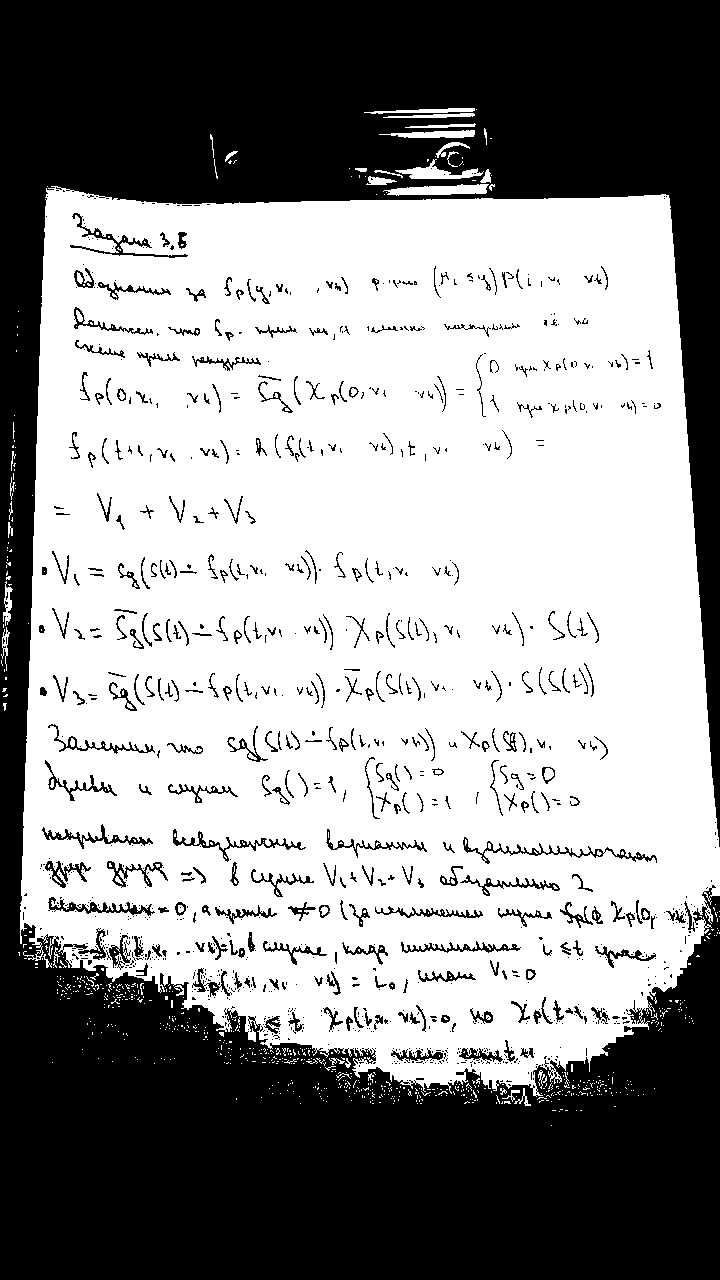 Задача 3,Б
Обозначим за fp(y, v₁ , vk) ф-цию (μi ≤ y) P(i, v₁ vk)
Докажем, что fp - прим рек, а именно построим её по
схеме прим рекурсии.
fp(0, x₁, vk) = S̅g̅(Xp(0, v₁ vk)) = { 0 при Xp(0 v₁ vk) = 1
1 при Xp(0, v₁ vk) = 0
fp(t+1, v₁ .. vk) = h(fp(t, v₁ vk), t, v₁ vk) =
= V₁ + V₂ + V₃
• V₁ = Sg(S(t) ∸ fp(t, v₁ vk)) · fp(t, v₁ vk)
• V₂ = S̅g̅(S(t) ∸ fp(t, v₁ vk)) · Xp(S(t), v₁ vk) · S(t)
• V₃ = S̅g̅(S(t) ∸ fp(t, v₁ vk)) · X̅p(S(t), v₁ vk) · S(S(t))
Заметим, что sg(S(t) ∸ fp(t, v₁ vk)) и Xp(S(t), v₁ vk)
булевы и случаи Sg() = 1, { Sg() = 0 Xp() = 1 , { Sg = 0 Xp() = 0
покрывают всевозможные варианты и взаимоисключают
друг друга => в сумме V₁ + V₂ + V₃ обязательно 2
слагаемых = 0, а третье ≠ 0 (за исключением случая Xp(0,
fp(t, v₁ .. vk) = i₀ в случае, когда минимальное i ≤ t
fp(t+1, v₁ vk) = i₀, иначе V₁ = 0
≤ t Xp(t, v₁ vk) = 0, но Xp(t+1,
число